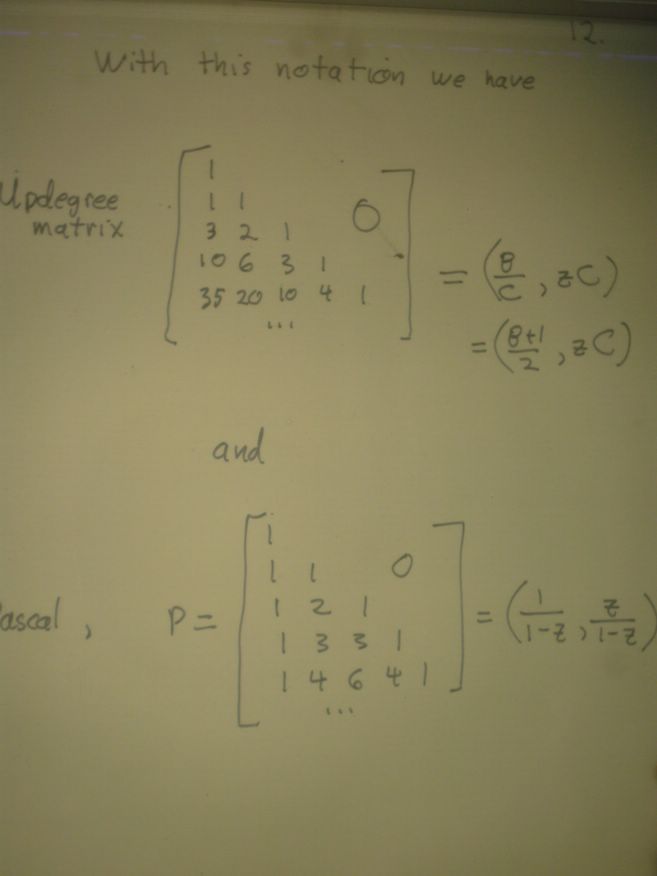 12.
With this notation we have
Updegree matrix
1
1 1
3 2 1
10 6 3 1
35 20 10 4 1
...
0
= (B/C, zC)
= (B+1/2, zC)
and
Pascal, P =
1
1 1
1 2 1
1 3 3 1
1 4 6 4 1
...
0
= (1/1-z, z/1-z)